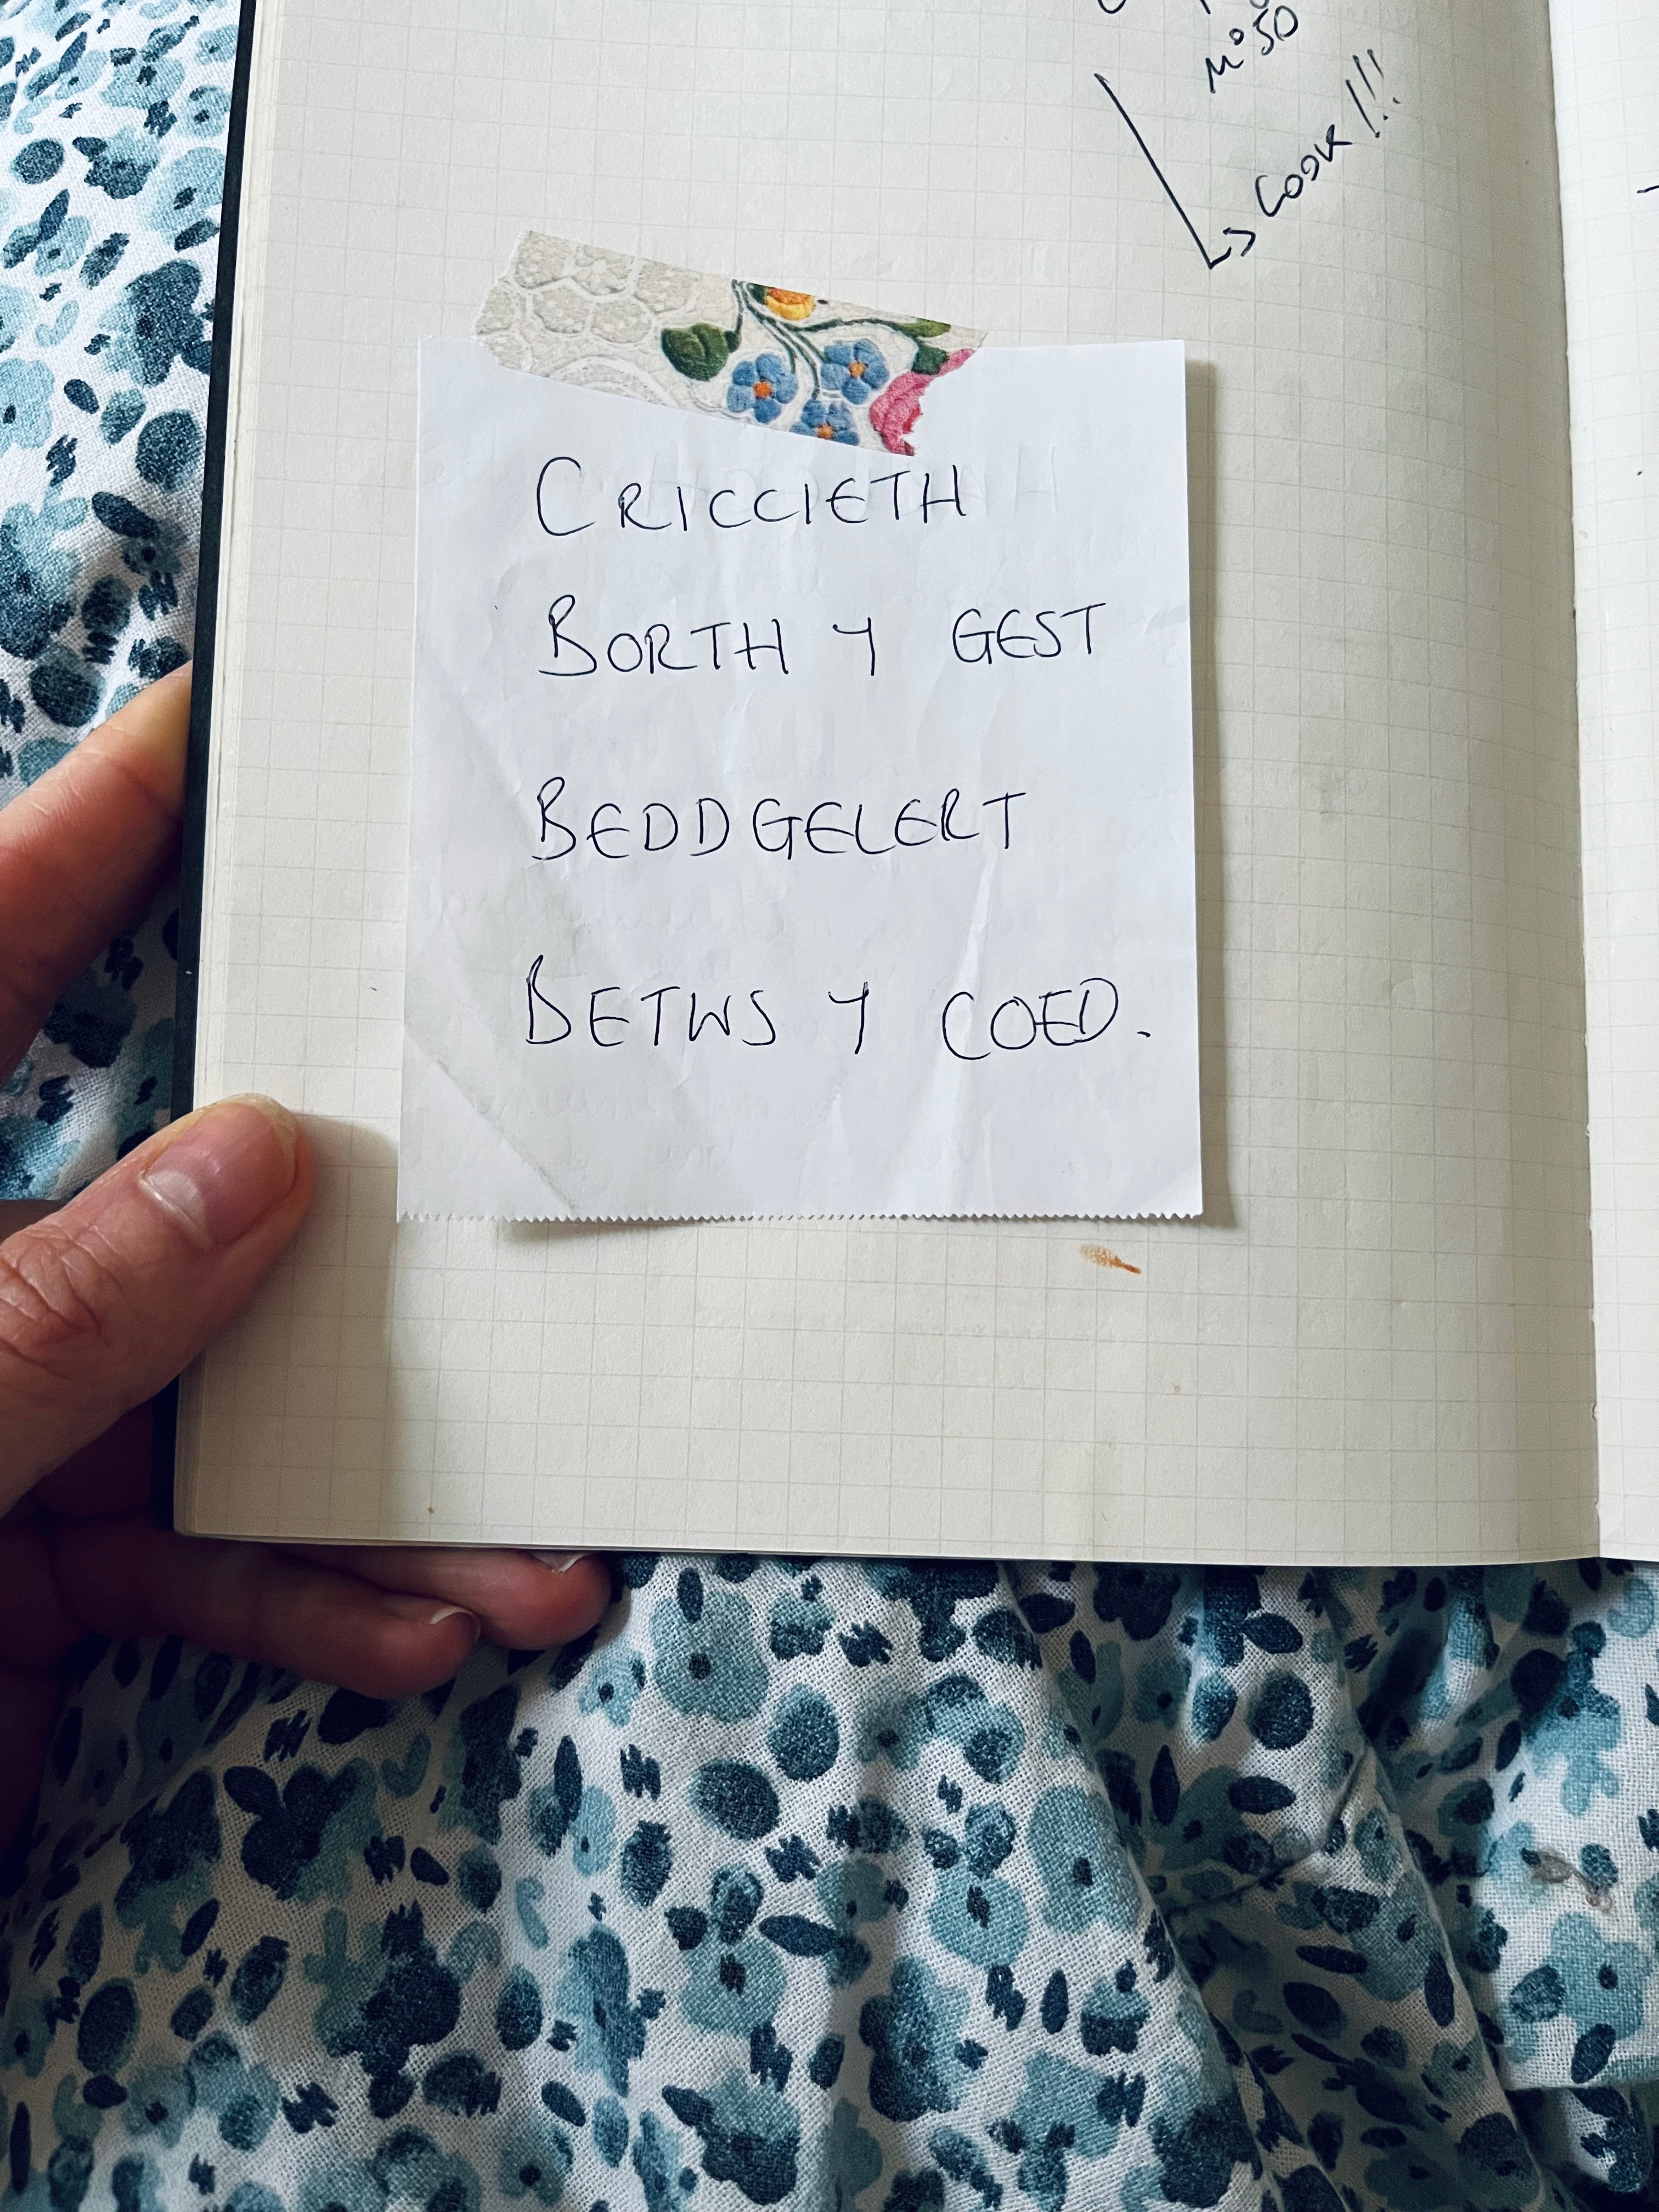 N° 50
COOK!!!
CRICCIETH
BORTH Y GEST
BEDDGELERT
BETWS Y COED.